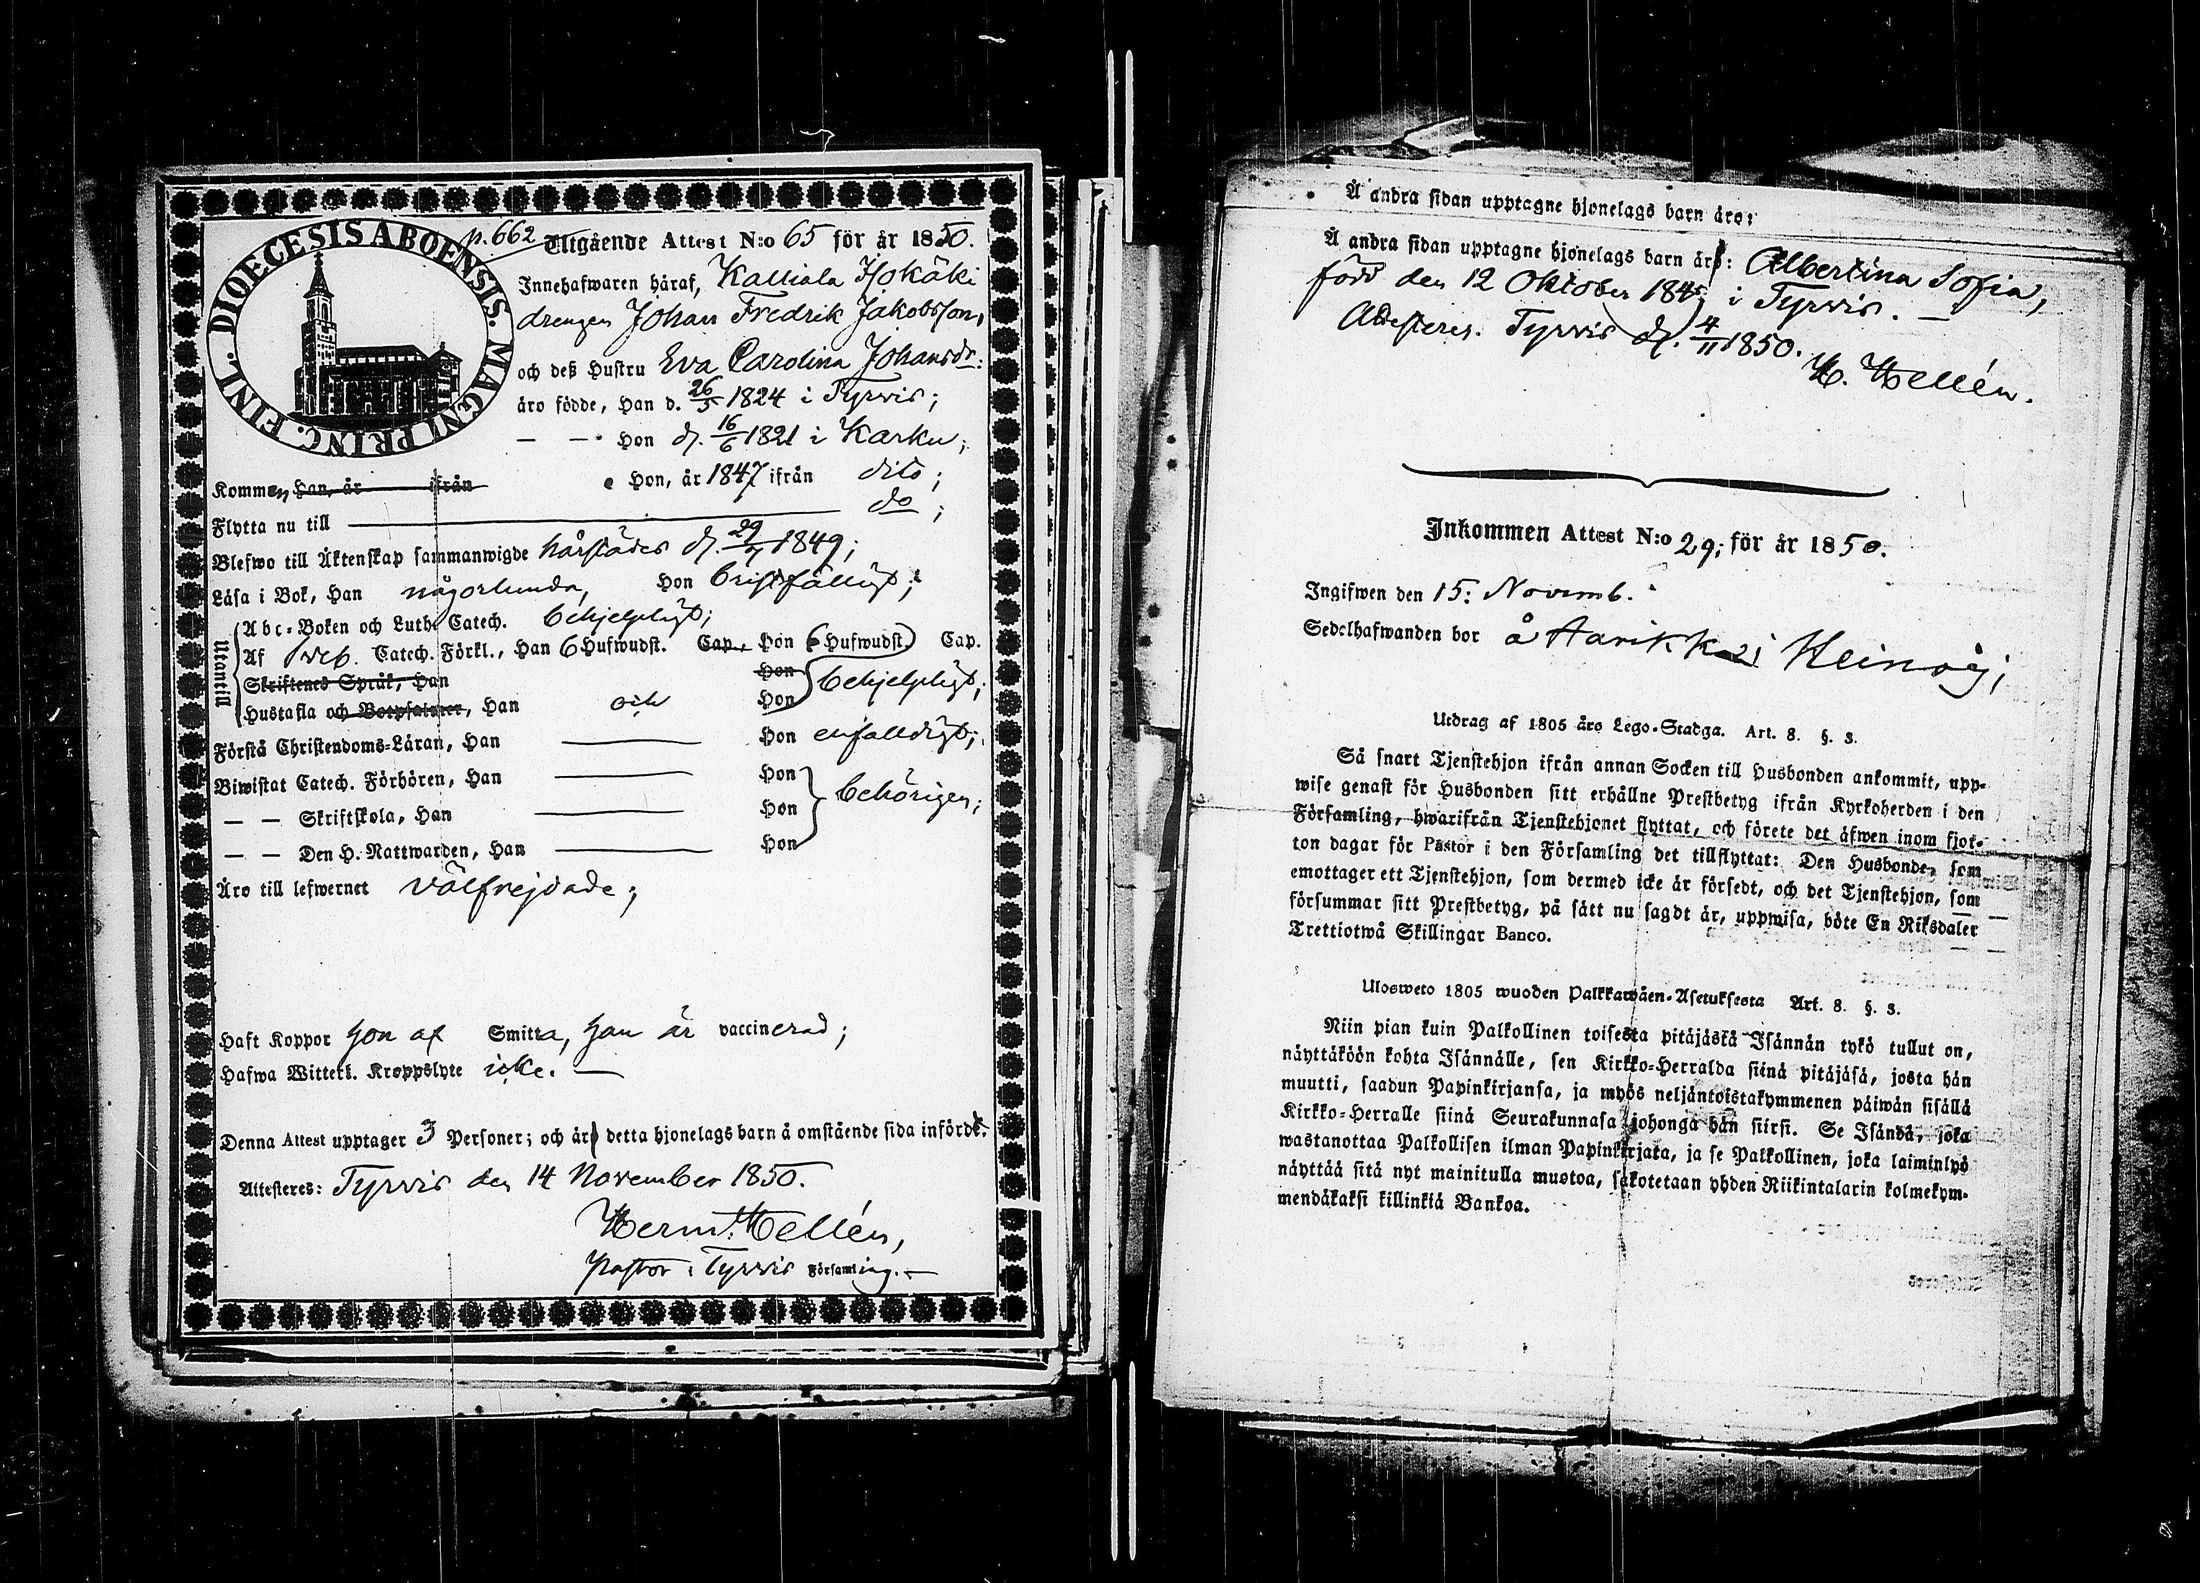 DIOECESIS ABOENSIS. MAGNI PRINC. FINL.
p. 662 Utgående Attest N:o 65 för år 1850.
Innehafwaren häraf, Kalliala Isokäki
drengen Johan Fredrik Jakobsson,
och deß Hustru Eva Carolina Johansdr:
äro födde, Han d. 26/5 1824 i Tyrvis;
— — Hon d. 16/6 1821 i Karku;
Kommen Han, år ifrån Hon, år 1847 ifrån dito;
Flytta nu till do;
Blefwo till Äktenskap sammanwigde härstädes d. 29/7 1849;
Läsa i Bok, Han någorlunda, Hon bristfälligt;
Utantill
Abc-Boken och Luth. Catech. behjelpligt;
Af Catech. Förkl., Han 6 Hufwudst. Cap., Hon 6 Hufwudst. Cap.
Skriftenes Språk, Han Hon
Hustafla och Botpsalmer, Han och Hon behjelpligt;
Förstå Christendoms-Läran, Han — Hon enfalldigt;
Biwistat Catech. Förhören, Han — Hon
— — Skriftskola, Han — Hon behörigen;
— — Den H. Nattwarden, Han — Hon
Äro till lefwernet välfrejdade;
Haft Koppor hon af Smitta, han är vaccinerad;
Hafwa Witterl. Kroppslyte icke. —
Denna Attest upptager 3 Personer; och är detta hjonelags barn å omstående sida infördt.
Attesteres: Tyrvis den 14 November 1850.
Herm. Hellén,
Pastor i Tyrvis Församling. —
Å andra sidan upptagne hjonelags barn äro:
Å andra sidan upptagne hjonelags barn är: Albertina Sofia,
född den 12 Oktober 184 i Tyrvis. —
Attesteres. Tyrvis d. 4/11 1850.
H. Hellén.
Inkommen Attest N:o 29; för år 1850.
Ingifwen den 15: Novemb.
Sedelhafwanden bor å Aarikka i Heinoj;
Utdrag af 1805 års Lego-Stadga. Art. 8. §. 3.
Så snart Tjenstehjon ifrån annan Socken till Husbonden ankommit, upp-
wise genast för Husbonden sitt erhållne Prestbetyg ifrån Kyrkoherden i den
Församling, hwarifrån Tjenstehjonet flyttat, och förete det äfwen inom fjor-
ton dagar för Pastor i den Församling det tillflyttat: Den Husbonde, som
emottager ett Tjenstehjon, som dermed icke är försedt, och det Tjenstehjon, som
försummar sitt Prestbetyg, på sätt nu sagdt är, uppwisa, böte En Riksdaler
Trettiotwå Skillingar Banco.
Uloswето 1805 wuoden Palkkawäen-Asetuksesta Art. 8. §. 3.
Niin pian kuin Palkollinen toisesta pitäjästä Isännän tykö tullut on,
näyttäköön kohta Isännälle, sen Kirkko-Herralda siinä pitäjäsä, josta hän
muutti, saadun Papinkirjansa, ja myös neljäntoistakymmenen päiwän sisällä
Kirkko-Herralle siinä Seurakunnasa johonga hän siirsi. Se Isändä, joka
wastanottaa Palkollisen ilman Papinkirjata, ja se Palkollinen, joka laiminlyö
näyttää sitä nyt mainitulla muotoa, sakotetaan yhden Riikintalarin kolmekym-
mendäkaksi killinkiä Bankoa.